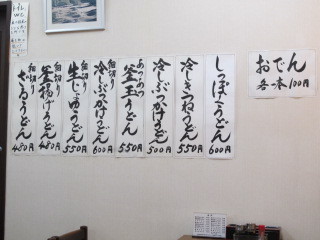 しっぽくうどん
600円
冷しきつねうどん
550円
冷しぶっかけうどん
500円
あつあつ
釜玉うどん
550円
細切り
冷しぶっかけうどん
600円
細切り
生じょうゆうどん
550円
細切り
釜揚げうどん
480円
細切り
ざるうどん
450円
おでん
各一本100円